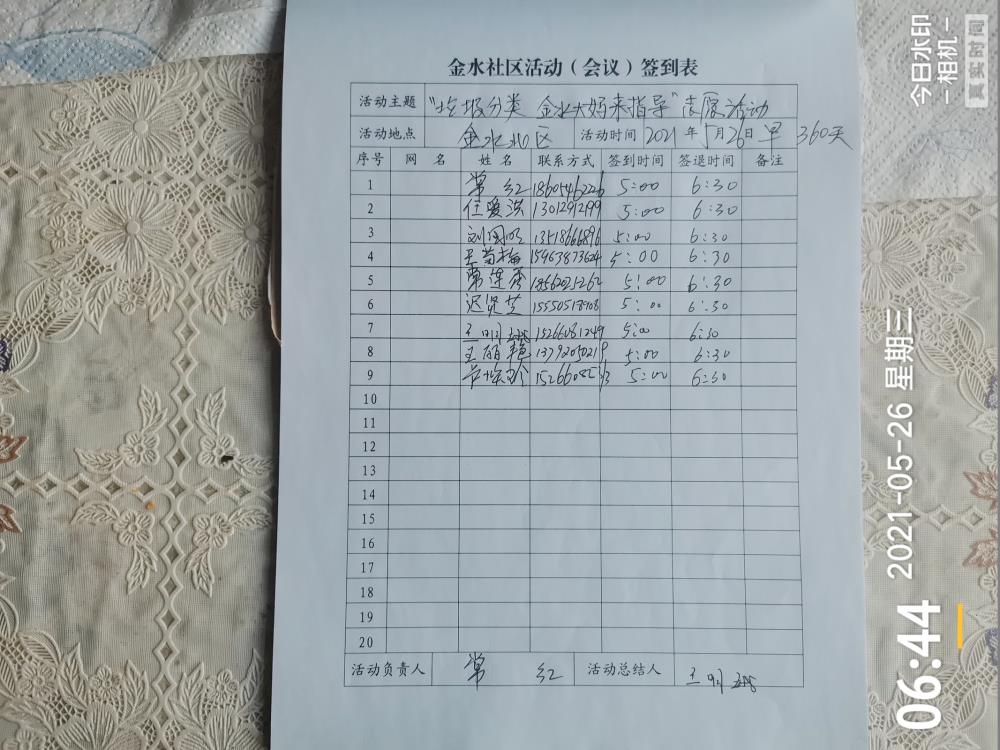 金水社区活动（会议）签到表
活动主题 "垃圾分类 金水大妈来指导"志愿活动
活动地点 金水北区 活动时间 2021年5月26日 早 360天
序号 网名 姓名 联系方式 签到时间 签退时间 备注
1 常红 18605462226 5:00 6:30
2 任爱洪 13012912199 5:00 6:30
3 刘国 13518666896 5:00 6:30
4 王菊梅 15963873624 5:00 6:30
5 常莲秀 18562021262 5:00 6:30
6 迟贤芝 15550518908 5:00 6:30
7 王明 15266081249 5:00 6:30
8 王丽艳 13792050219 5:00 6:30
9 5:00 6:30
10
11
12
13
14
15
16
17
18
19
20
活动负责人 常红 活动总结人 王明
今日水印
-相机-
真实时间
06:44 2021-05-26 星期三